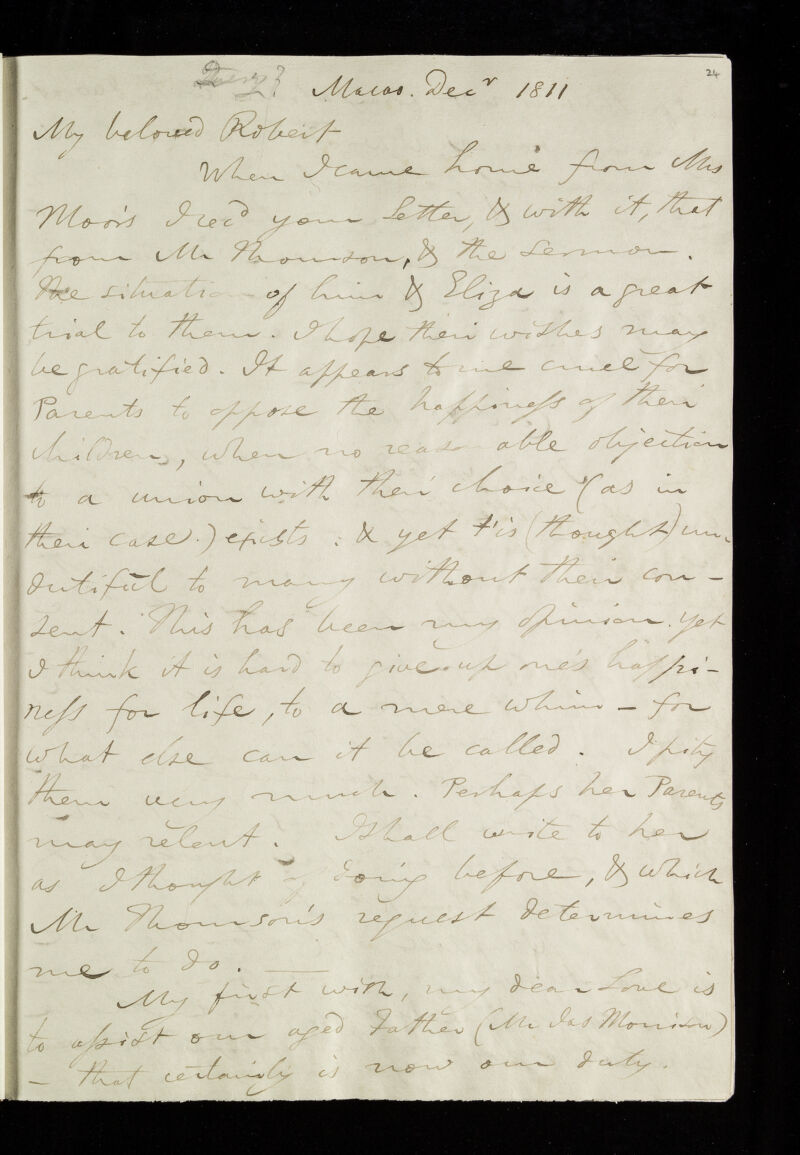 24
Macao. Decr 1811
My beloved Robert
When I came home from Mrs
Moris I recd your Letter, & with it, that
from Mr Thomson, & the Sermon.
The situation of him & Eliza is a great
trial to them. I hope their wishes may
be gratified. It appears to me cruel for
Parents to oppose the happiness of their
children, when no reasonable objection
to a union with their choice (as in
their case.) exists : & yet t'is (thought) un-
dutiful to marry without their con-
sent. This has been my opinion. yet
I think it is hard to give up one's happi-
ness for life, to a mere whim – for
what else can it be called. I pity
them very much. Perhaps her Parents
may relent. I shall write to her
as I thought of doing before, & which
Mr Thomson's request determines
me to do. —
My first wish, my dear Love is
to assist our aged Father (Mr Jas Morrison)
– that certainly is now our duty.